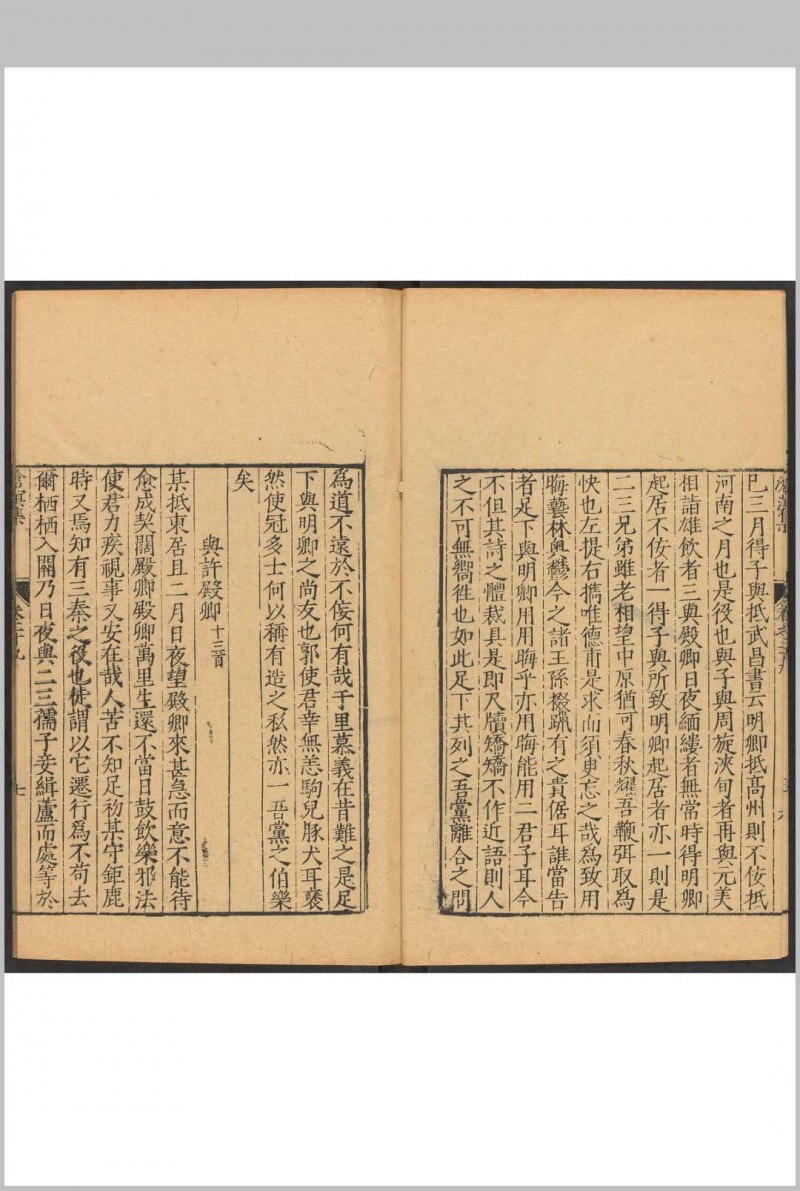 巳三月得子與抵武昌書云明卿抵高州則不佞抵
河南之月也是役也與子與周旋浹旬者再與元美
相詣雄飲者三與殿卿日夜緬縷者無常時得明卿
起居不佞者一得子與所致明卿起居者亦一則是
二三兄弟雖老相望中原猶可春秋耀吾鞭弭取爲
快也左提右攜唯德甫是求而須臾忘之哉爲致用
晦藝林奧鬱今之諸王孫掇躐有之貴倨耳誰當告
者足下與明卿用用晦乎亦用晦能用二君子耳今
不但其詩之體裁具是即尺牘矯矯不作近語則人
之不可無嚮往也如此足下其刻之吾黨離合之問
爲道不遠於不佞何有哉千里慕義在昔難之是足
下與明卿之尚友也郭使君幸無恙駒兒豚犬耳褎
然使冠多士何以稱有造之私然亦一吾黨之伯樂
矣
與許殿卿十三首
某抵東居且二月日夜望殿卿來甚急而意不能待
愈成契闊殿卿殿卿萬里生還不當日鼓飲樂邪法
使君力疾視事又安在哉人苦不知足初某守鉅鹿
時又焉知有三秦之役也徒謂以它遷行爲不苟去
爾栖栖入關乃日夜與二三孺子妾緝蘆而處等於
滄溟集
卷之二十九
七